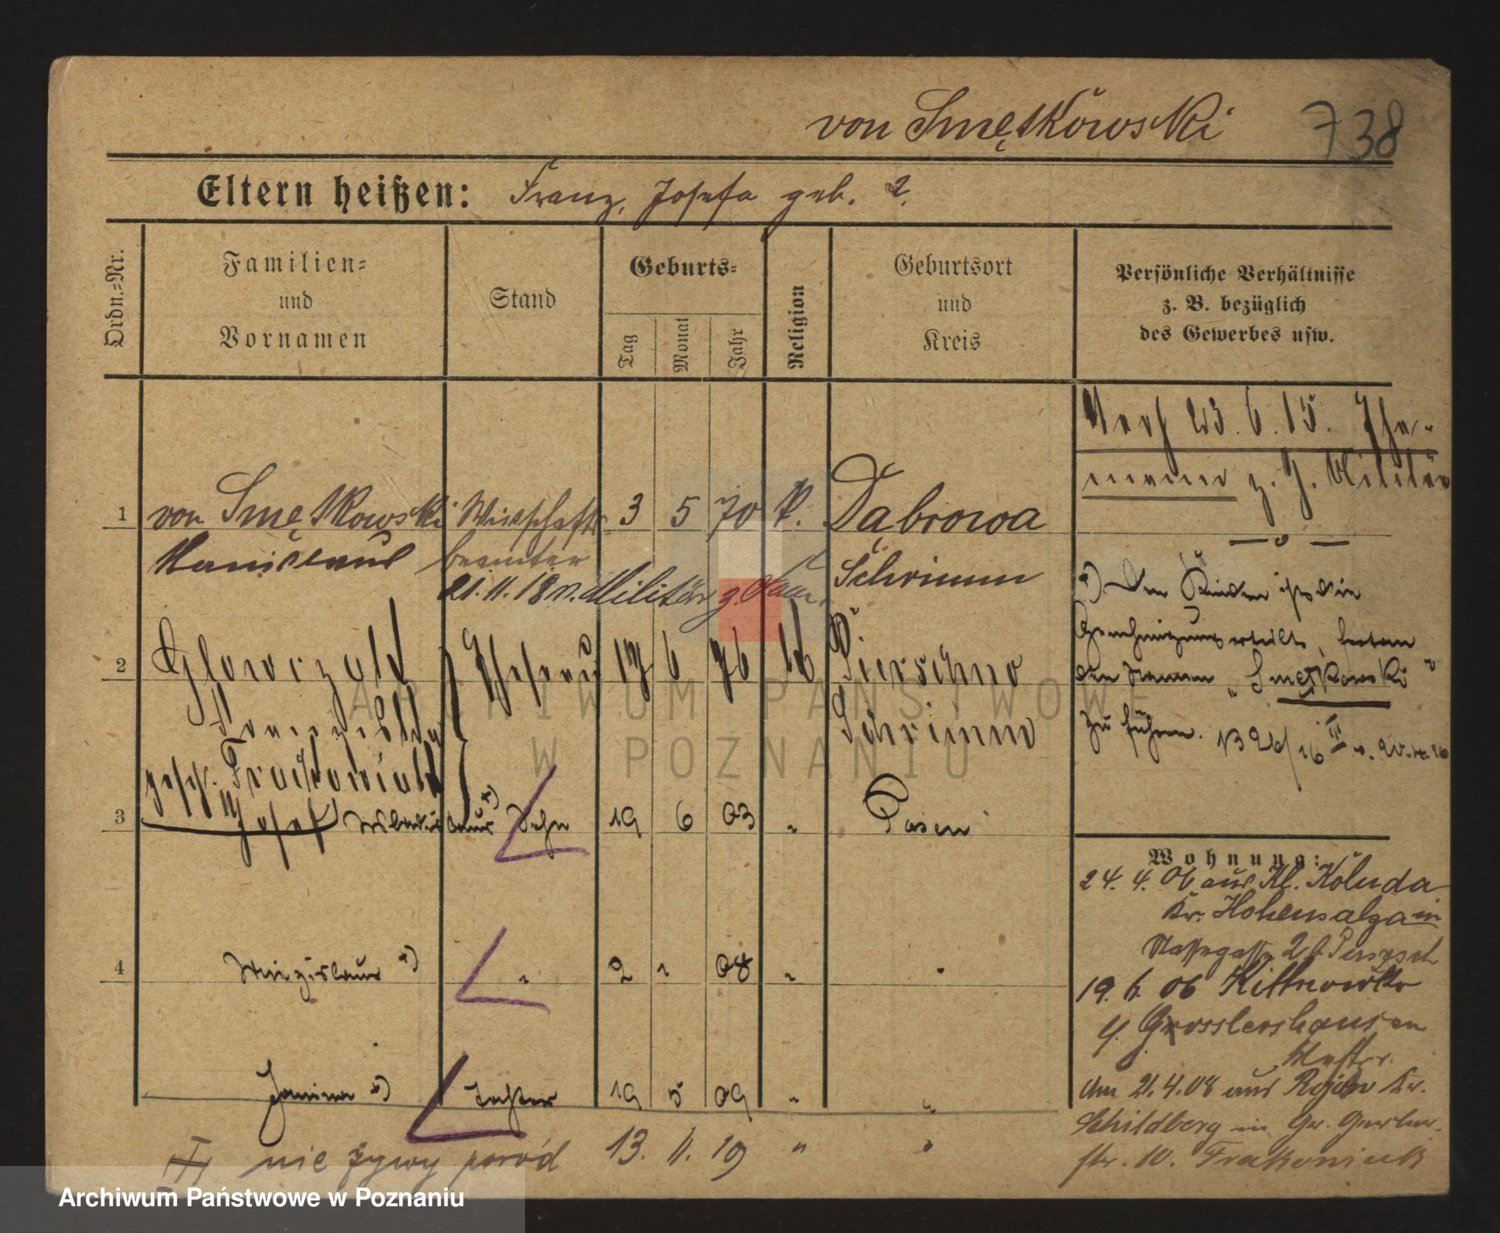 von Smętkowski 738
Eltern heißen: Franz, Josefa geb. ?.
Ordn.-Nr.
Familien-
und
Vornamen
Stand
Geburts-
Tag
Monat
Jahr
Religion
Geburtsort
und
Kreis
Persönliche Verhältnisse
z. B. bezüglich
des Gewerbes usw.
23. 6. 15. Ehe-
mann z. Z. Militär
1 von Smętkowski Wirtschafts 3 5 70 k. Dąbrowa
Stanislaus beamter Schrimm
21. 11. 18 v. Militär z.
*) Den Kindern ist die
Genehmigung erteilt,
den Namen „Smętkowski"
zu führen.
2 Glowczak Ehefrau 17 6 76 Pierschno
Schrimm
gesch. Frackowiak
3 Josef *) Sohn 19 6 03 " Posen
Wohnung:
24. 4. 06 aus Kl. Koluda
Kr. Hohensalza in
4 *) " 2 1 08 " "
19. 6. 06 Kittnowko
Grosslershausen
Westpr.
Am 21. 4. 08 aus Kr.
Janina *) Tochter 19 5 09 " "
Schildberg in
nie żywy poród 13. 11. 19 " "
str. 10. Frakoniak
ARCHIWUM PAŃSTWOWE
W POZNANIU
Archiwum Państwowe w Poznaniu